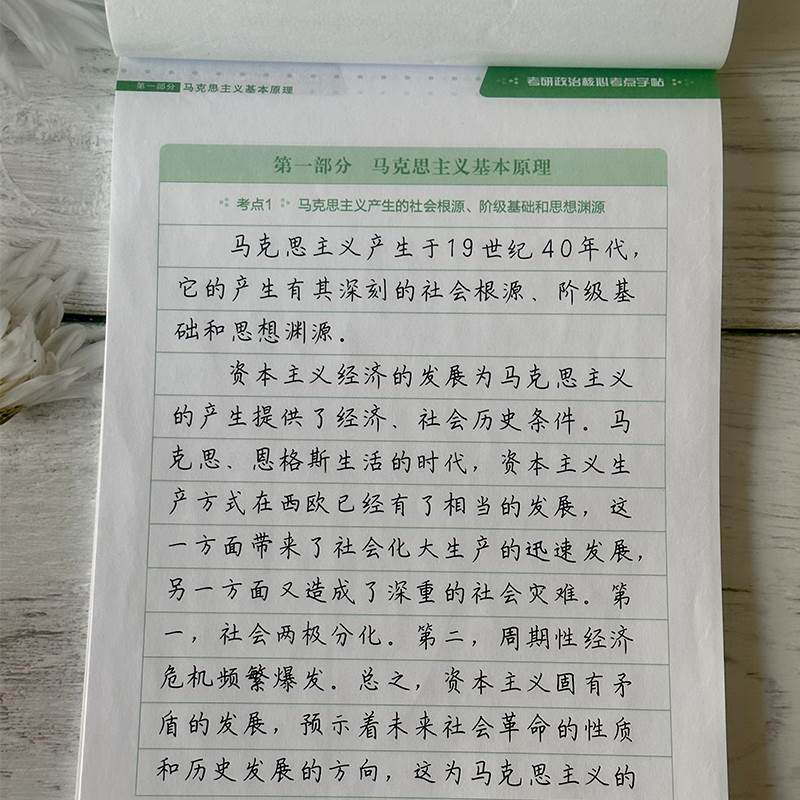 第一部分 马克思主义基本原理
考研政治核心考点字帖
第一部分 马克思主义基本原理
考点1 马克思主义产生的社会根源、阶级基础和思想渊源
马克思主义产生于19世纪40年代，
它的产生有其深刻的社会根源、阶级基
础和思想渊源．
资本主义经济的发展为马克思主义
的产生提供了经济、社会历史条件．马
克思、恩格斯生活的时代，资本主义生
产方式在西欧已经有了相当的发展，这
一方面带来了社会化大生产的迅速发展，
另一方面又造成了深重的社会灾难．第
一，社会两极分化．第二，周期性经济
危机频繁爆发．总之，资本主义固有矛
盾的发展，预示着未来社会革命的性质
和历史发展的方向，这为马克思主义的